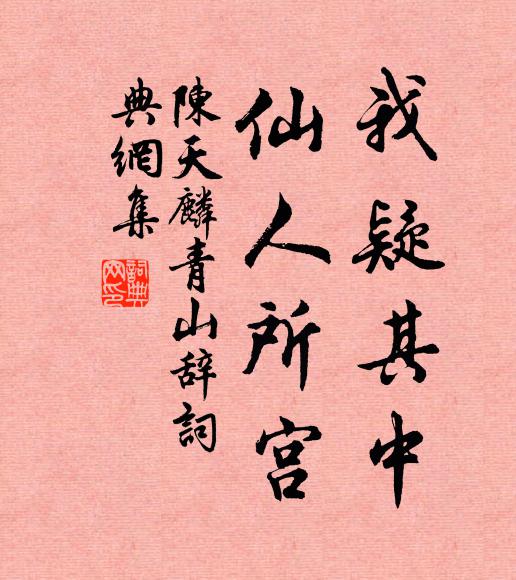 我疑其中
仙人所宫
陳天麟青山辞詞
典網集
詞典
网印